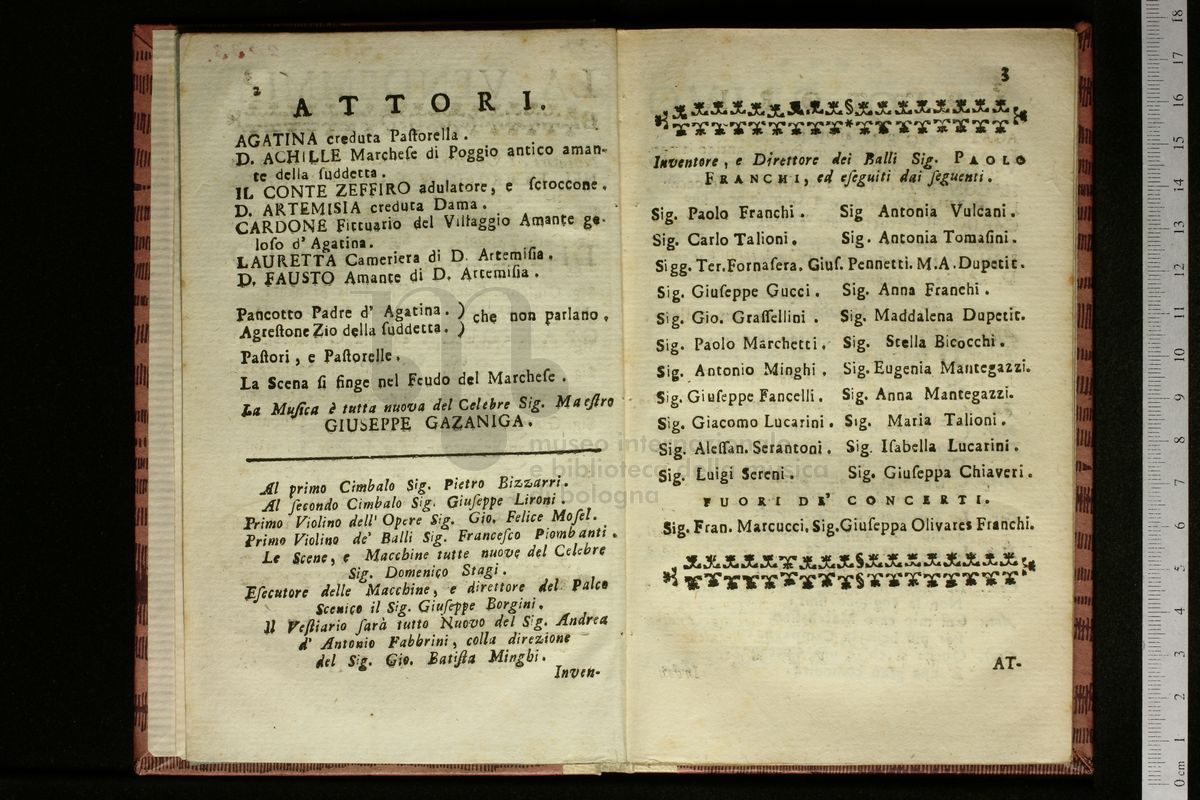 2
ATTORI.
AGATINA creduta Paſtorella.
D. ACHILLE Marcheſe di Poggio antico aman-
te della ſuddetta.
IL CONTE ZEFFIRO adulatore, e ſcroccone.
D. ARTEMISIA creduta Dama.
CARDONE Fittuario del Villaggio Amante ge-
loſo d' Agatina.
LAURETTA Cameriera di D. Artemiſia.
D. FAUSTO Amante di D. Artemiſia.
Pancotto Padre d' Agatina. )
Agreſtone Zio della ſuddetta. ) che non parlano.
Paſtori, e Paſtorelle.
La Scena ſi finge nel Feudo del Marcheſe.
La Muſica è tutta nuova del Celebre Sig. Maeſtro
GIUSEPPE GAZANIGA.
Al primo Cimbalo Sig. Pietro Bizzarri.
Al ſecondo Cimbalo Sig. Giuſeppe Lironi.
Primo Violino dell' Opere Sig. Gio. Felice Moſel.
Primo Violino de' Balli Sig. Franceſco Piombanti.
Le Scene, e Macchine tutte nuove del Celebre
Sig. Domenico Stagi.
Eſecutore delle Macchine, e direttore del Palco
Scenico il Sig. Giuſeppe Borgini.
Il Veſtiario ſarà tutto Nuovo del Sig. Andrea
d' Antonio Fabbrini, colla direzione
del Sig. Gio. Batiſta Minghi.
Inven-
3
Inventore, e Direttore dei Balli Sig. PAOLO
FRANCHI, ed eſeguiti dai ſeguenti.
Sig. Paolo Franchi. Sig Antonia Vulcani.
Sig. Carlo Talioni. Sig. Antonia Tomaſini.
Sigg. Ter.Fornaſera. Giuſ. Pennetti. M.A.Dupetit.
Sig. Giuſeppe Gucci. Sig. Anna Franchi.
Sig. Gio. Graſſellini. Sig. Maddalena Dupetit.
Sig. Paolo Marchetti. Sig. Stella Bicocchi.
Sig. Antonio Minghi. Sig. Eugenia Mantegazzi.
Sig. Giuſeppe Fancelli. Sig. Anna Mantegazzi.
Sig. Giacomo Lucarini. Sig. Maria Talioni.
Sig. Aleſſan. Serantoni. Sig. Iſabella Lucarini.
Sig. Luigi Sereni. Sig. Giuſeppa Chiaveri.
FUORI DE' CONCERTI.
Sig. Fran. Marcucci. Sig.Giuſeppa Olivares Franchi.
AT-
museo internazionale
e biblioteca della musica
bologna
0 cm 1 2 3 4 5 6 7 8 9 10 11 12 13 14 15 16 17 18